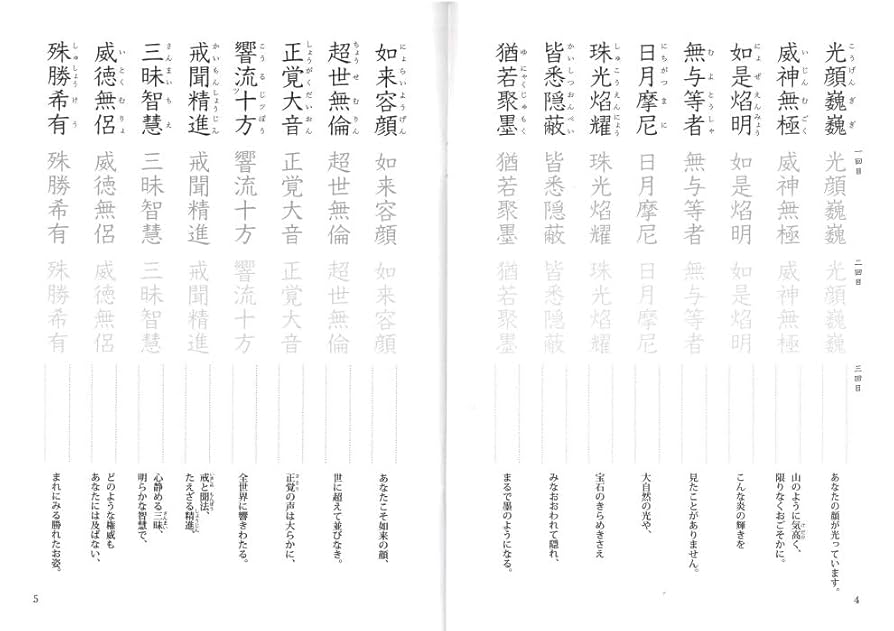 光顔巍巍
こうげんぎぎ
威神無極
いじんむごく
如是焰明
にょぜえんみょう
無与等者
むよとうしゃ
日月摩尼
にちがつまに
珠光焰耀
しゅこうえんにょう
皆悉隠蔽
かいしつおんぺい
猶若聚墨
ゆにゃくじゅもく
一回目
光顔巍巍
威神無極
如是焰明
無与等者
日月摩尼
珠光焰耀
皆悉隠蔽
猶若聚墨
二回目
光顔巍巍
威神無極
如是焰明
無与等者
日月摩尼
珠光焰耀
皆悉隠蔽
猶若聚墨
三回目
あなたの顔が光っています。
山のように気高く、
限りなくおごそかに。
こんな炎の輝きを
見たことがありません。
大自然の光や、
宝石のきらめきさえ
みなおおわれて隠れ、
まるで墨のようになる。
4
如来容顔
にょらいようげん
超世無倫
ちょうせむりん
正覚大音
しょうがくだいおん
響流十方
こうるじッぽう
戒聞精進
かいもんしょうじん
三昧智慧
さんまいちえ
威徳無侶
いとくむりょ
殊勝希有
しゅしょうけう
如来容顔
超世無倫
正覚大音
響流十方
戒聞精進
三昧智慧
威徳無侶
殊勝希有
如来容顔
超世無倫
正覚大音
響流十方
戒聞精進
三昧智慧
威徳無侶
殊勝希有
あなたこそ如来の顔、
世に超えて並びなき。
正覚の声は大らかに、
全世界に響きわたる。
戒と聞法、
たえざる精進、
心静める三昧、
明らかな智慧で、
どのような権威も
あなたには及ばない、
まれにみる勝れたお姿。
5